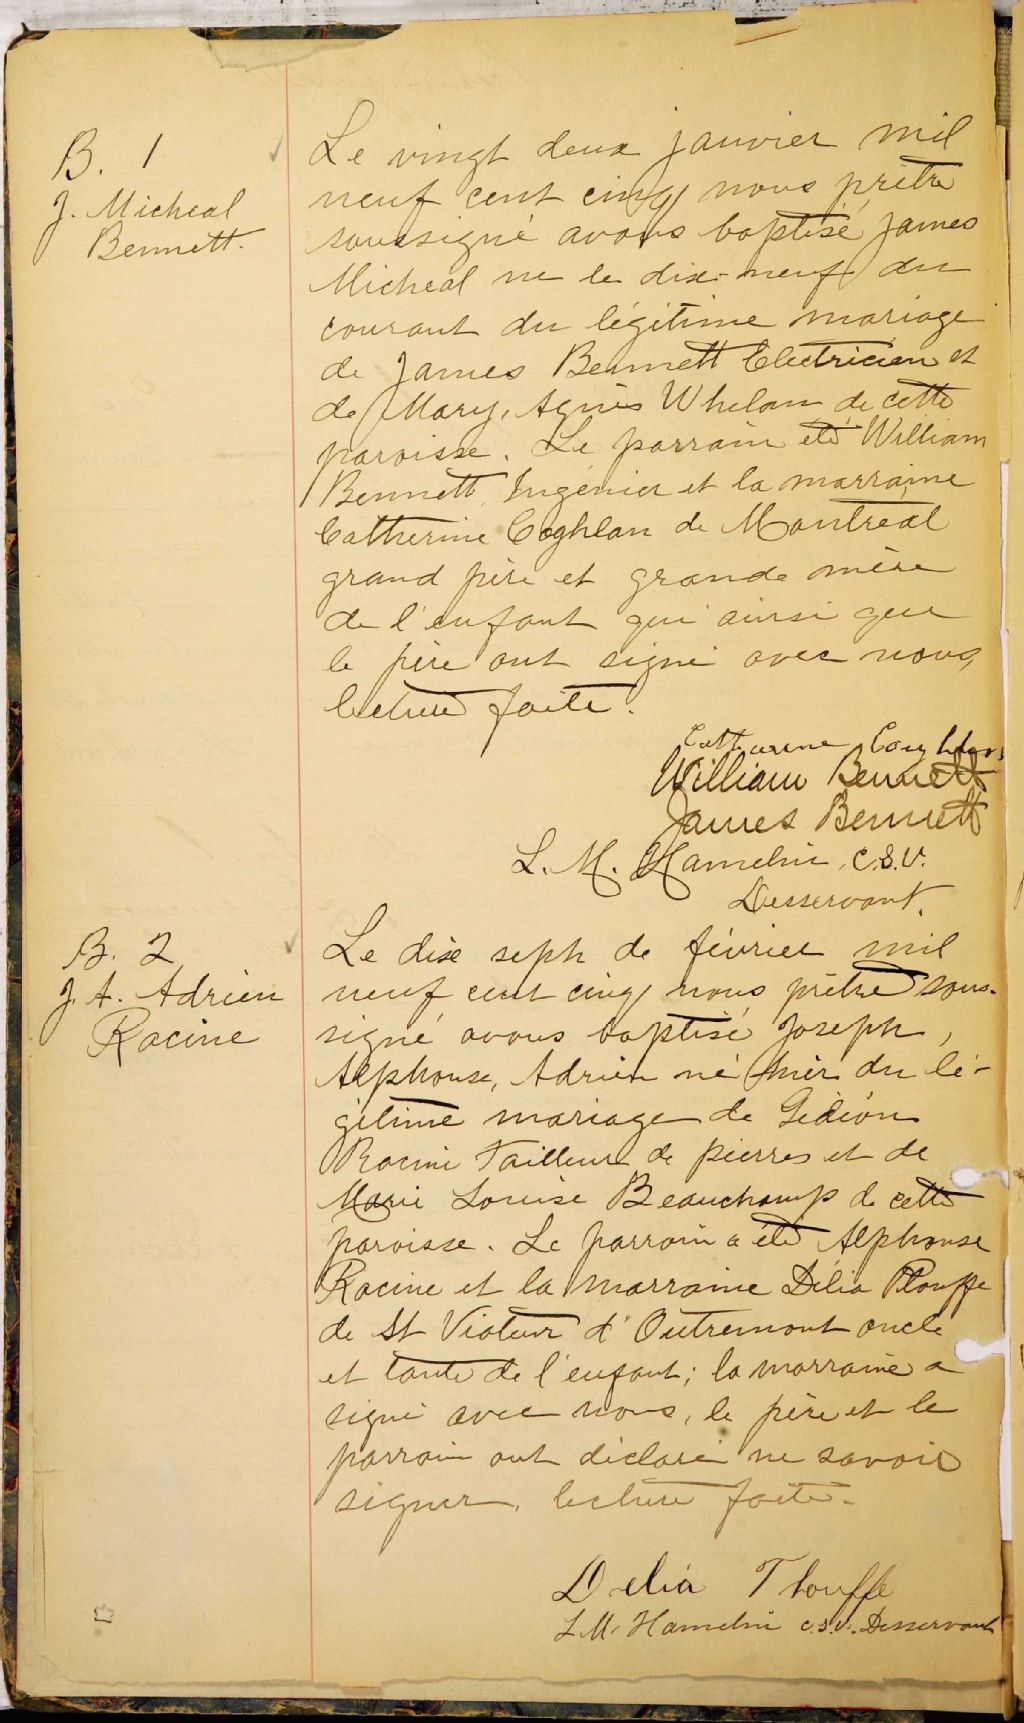 B. 1
J. Micheal
Bennett.
Le vingt deux janvier mil
neuf cent cinq nous prêtre
soussigné avons baptisé James
Micheal né le dix-neuf du
courant du légitime mariage
de James Bennett Electricien et
de Mary, Agnès Whelan de cette
paroisse. Le parrain été William
Bennett Ingénier et la marraine
Catherine Coghlan de Montreal
grand père et grande mère
de l'enfant qui ainsi que
le père ont signé avec nous,
lecture faite.
Catharine Coughlan
William Bennett
James Bennett
L. M. Hamelin, C.S.V.
Desservant.
B. 2
J. A. Adrien
Racine
Le dix seph de février mil
neuf cent cinq nous prêtre sous-
signé avons baptisé Joseph,
Alphonse, Adrien né hier du lé-
gitime mariage de Gédéon
Racine Tailleur de pierres et de
Marie Louise Beauchamp de cette
paroisse. Le parrain a été Alphonse
Racine et la marraine Délia Plouffe
de St Viateur d'Outremont oncle
et tante de l'enfant; la marraine a
signé avec nous, le père et le
parrain ont déclaré ne savoir
signer, lecture faite.
Delia Plouffe
L.M. Hamelin c.s.v. Desservant